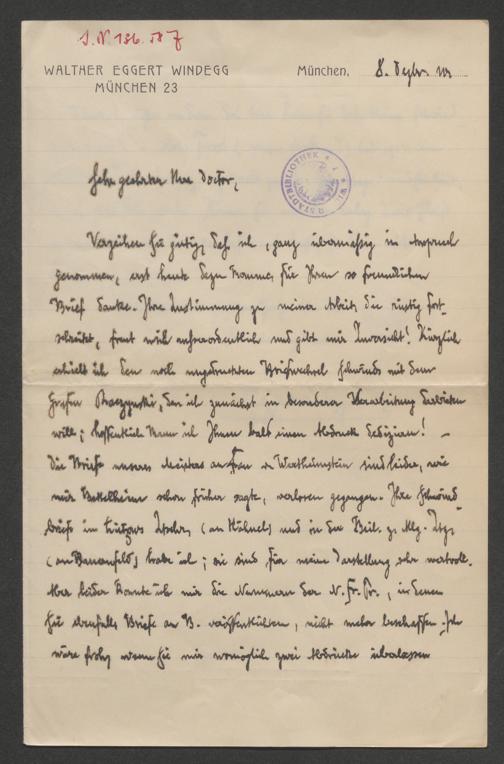 J. N. 136.587
WALTHER EGGERT WINDEGG
MÜNCHEN 23
München, 8. Dezbr.
WIENER STADTBIBLIOTHEK
Sehr geehrter Herr Doctor,
Verzeihen Sie gütig, daß ich, ganz übermäßig in Anspruch
genommen, erst heute dazu komme, für Ihren so freundlichen
Brief danke. Ihre Zustimmung zu meiner Arbeit, die rüstig fort-
schreitet, freut mich außerordentlich und gibt mir Zuversicht! Kürzlich
erhielt ich den noch ungedruckten Briefwechsel Schwinds mit dem
Grafen Raczynski, den ich zunächst in besonderer Verarbeitung darbieten
will; hoffentlich kann ich Ihnen bald einen Abdruck dedizieren! –
Die Briefe unseres Meisters an Frau v. Wertheimstein sind leider, wie
mir Bettelheim schon früher sagte, verloren gegangen. Ihre Schwind-
briefe in Lützows Ztschr. (an Hähnel) und in der Beil. z. Allg. Ztg.
(an Bauernfeld) habe ich; sie sind für meine Darstellung sehr wertvoll.
Aber leider konnte ich mir die Nummern der N. Fr. Pr., in denen
Sie ebenfalls Briefe an B. veröffentlichten, nicht mehr beschaffen. Ich
wäre froh, wenn Sie mir womöglich zwei Abdrücke überlassen